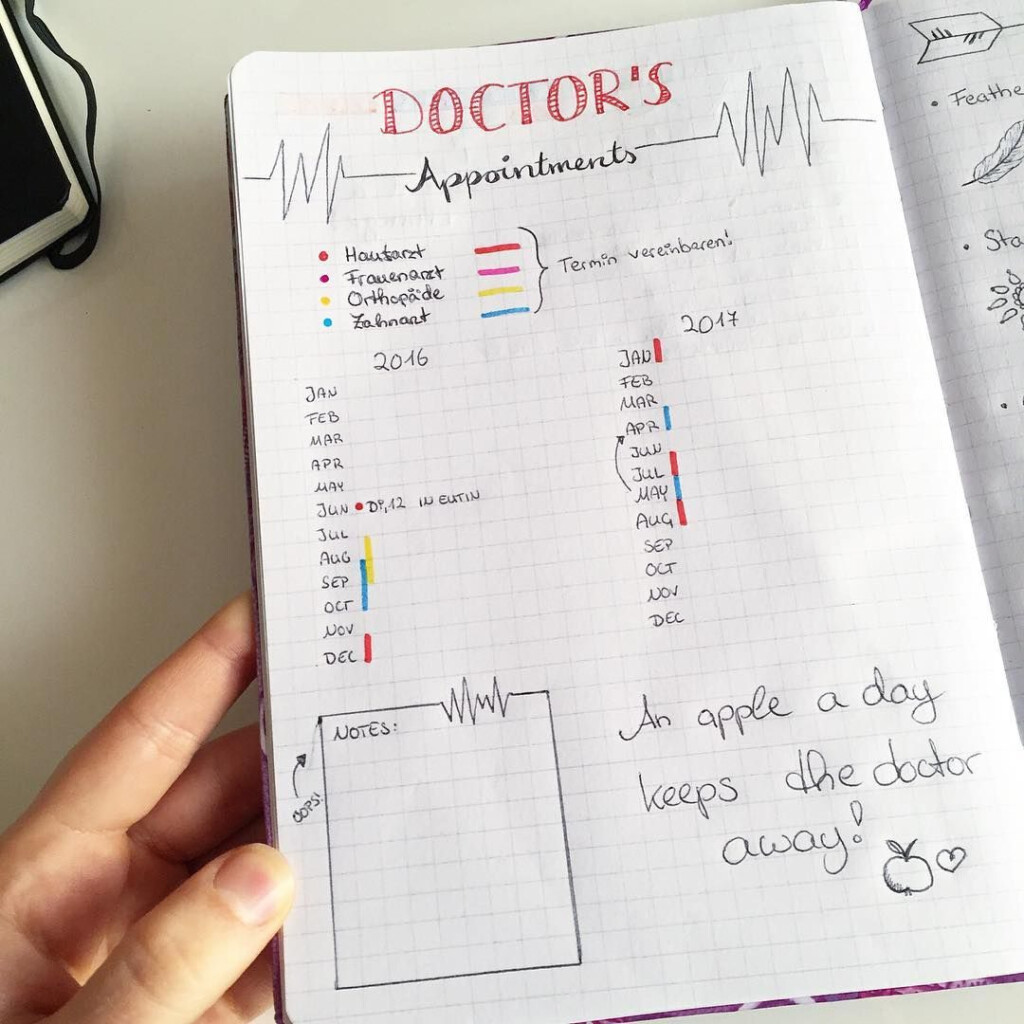 DOCTOR'S
Appointments
Hautarzt
Frauenarzt
Orthopäde
Zahnarzt
Termin vereinbaren!
2016
JAN
FEB
MAR
APR
MAY
JUN Di,12 IN EUTIN
JUL
AUG
SEP
OCT
NOV
DEC
2017
JAN
FEB
MAR
APR
JUN
JUL
MAY
AUG
SEP
OCT
NOV
DEC
NOTES:
OOPS!
An apple a day
keeps the doctor
away!
• Feathe
• Sta